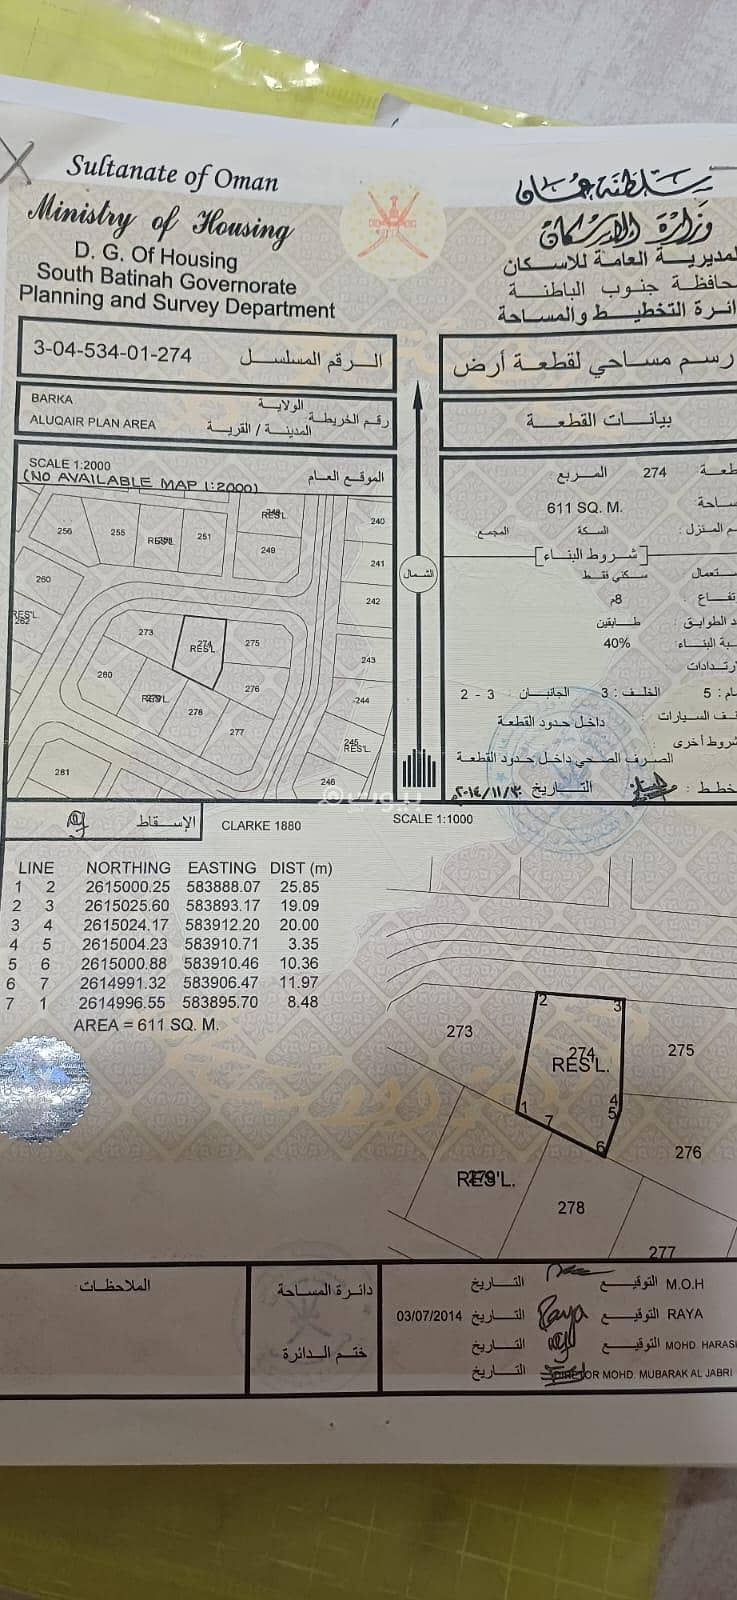 Sultanate of Oman
Ministry of Housing
D. G. Of Housing
South Batinah Governorate
Planning and Survey Department
سلطنة عمان
وزارة الإسكان
المديرية العامة للاسكان
حافظة جنوب الباطنة
ائرة التخطيط والمساحة
3-04-534-01-274 الرقم المسلسل
رسم مساحي لقطعة أرض
BARKA الولاية
رقم الخريطة
ALUQAIR PLAN AREA المدينة / القرية
بيانات القطعة
SCALE 1:2000 الموقع العام
(NO AVAILABLE MAP 1:2000)
256
255
RES'L.
251
RES'L.
249
240
241
242
243
244
245
RES'L.
246
260
RES'L.
262
273
274
RES'L.
275
276
277
278
RES'L.
280
281
الشمال
طعة 274 المربع
ساحة 611 SQ. M.
م المنزل: السكة المجمع:
[شروط البناء]
ستعمال سكني فقط
تفاع: 8م
د الطوابق: طابقين
بة البناء: 40%
رتدادات
ام: 5 الخلف: 3 الجانبان 3 - 2
قف السيارات داخل حدود القطعة
شروط أخرى: الصرف الصحي داخل حدود القطعة
خطط: التاريخ ٢٠١٤/١١/٣٠م
بيوت
الإسقاط CLARKE 1880
SCALE 1:1000
LINE NORTHING EASTING DIST (m)
1 2 2615000.25 583888.07 25.85
2 3 2615025.60 583893.17 19.09
3 4 2615024.17 583912.20 20.00
4 5 2615004.23 583910.71 3.35
5 6 2615000.88 583910.46 10.36
6 7 2614991.32 583906.47 11.97
7 1 2614996.55 583895.70 8.48
AREA = 611 SQ. M.
2
3
273
274
RES'L.
275
1
7
4
5
6
276
279
RES'L.
278
277
الملاحظات:
دائرة المساحة
ختم الدائرة
التاريخ التوقيع M.O.H
03/07/2014 التاريخ Raya التوقيع RAYA
التاريخ التوقيع MOHD HARASI
التاريخ DIRECTOR MOHD. MUBARAK AL JABRI